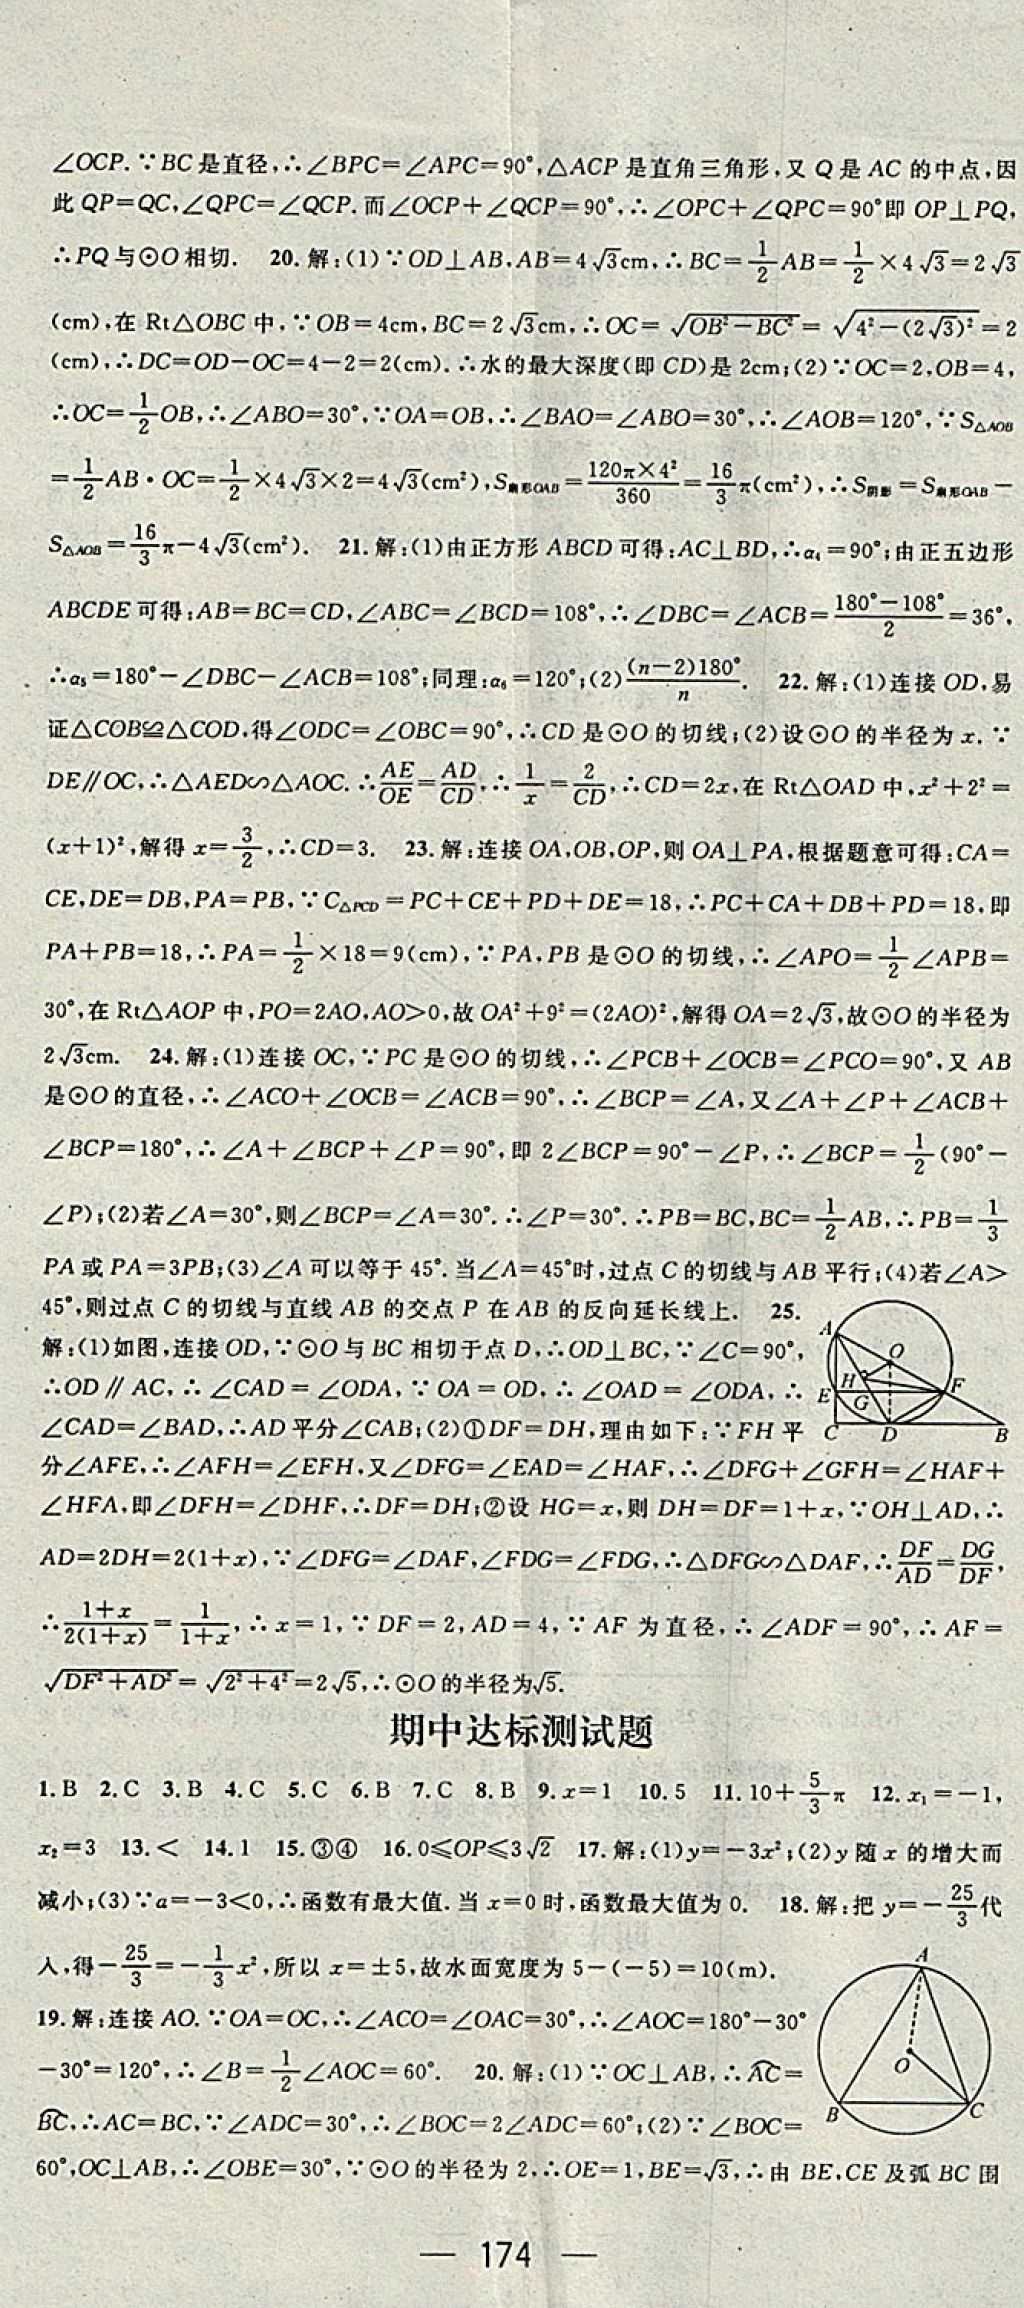 ∠OCP.∵BC是直径,∴∠BPC=∠APC=90°,△ACP是直角三角形,又Q是AC的中点,因
此QP=QC,∠QPC=∠QCP.而∠OCP+∠QCP=90°,∴∠OPC+∠QPC=90°即OP⊥PQ,
∴PQ与⊙O相切. 20.解:(1)∵OD⊥AB,AB=4√3cm,∴BC=1/2AB=1/2×4√3=2√3
(cm),在Rt△OBC中,∵OB=4cm,BC=2√3cm,∴OC=√(OB²-BC²)=√(4²-(2√3)²)=2
(cm),∴DC=OD-OC=4-2=2(cm).∴水的最大深度(即CD)是2cm;(2)∵OC=2,OB=4,
∴OC=1/2OB,∴∠ABO=30°,∵OA=OB,∴∠BAO=∠ABO=30°,∴∠AOB=120°,∵S△AOB
=1/2AB·OC=1/2×4√3×2=4√3(cm²),S扇形OAB=120π×4²/360=16/3π(cm²),∴S阴影=S扇形OAB-
S△AOB=16/3π-4√3(cm²). 21.解:(1)由正方形ABCD可得:AC⊥BD,∴α₄=90°;由正五边形
ABCDE可得:AB=BC=CD,∠ABC=∠BCD=108°,∴∠DBC=∠ACB=(180°-108°)/2=36°,
∴α₅=180°-∠DBC-∠ACB=108°;同理:α₆=120°;(2)(n-2)180°/n. 22.解:(1)连接OD,易
证△COB≌△COD,得∠ODC=∠OBC=90°,∴CD是⊙O的切线;(2)设⊙O的半径为x.∵
DE∥OC,∴△AED∽△AOC.∴AE/OE=AD/CD,∴1/x=2/CD,∴CD=2x,在Rt△OAD中,x²+2²=
(x+1)²,解得x=3/2,∴CD=3. 23.解:连接OA,OB,OP,则OA⊥PA,根据题意可得:CA=
CE,DE=DB,PA=PB,∵C△PCD=PC+CE+PD+DE=18,∴PC+CA+DB+PD=18,即
PA+PB=18,∴PA=1/2×18=9(cm),∵PA,PB是⊙O的切线,∴∠APO=1/2∠APB=
30°,在Rt△AOP中,PO=2AO,AO>0,故OA²+9²=(2AO)²,解得OA=2√3,故⊙O的半径为
2√3cm. 24.解:(1)连接OC,∵PC是⊙O的切线,∴∠PCB+∠OCB=∠PCO=90°,又AB
是⊙O的直径,∴∠ACO+∠OCB=∠ACB=90°,∴∠BCP=∠A,又∠A+∠P+∠ACB+
∠BCP=180°,∴∠A+∠BCP+∠P=90°,即2∠BCP=90°-∠P,∴∠BCP=1/2(90°-
∠P);(2)若∠A=30°,则∠BCP=∠A=30°.∴∠P=30°.∴PB=BC,BC=1/2AB,∴PB=1/3
PA或PA=3PB;(3)∠A可以等于45°.当∠A=45°时,过点C的切线与AB平行;(4)若∠A>
45°,则过点C的切线与直线AB的交点P在AB的反向延长线上. 25.
解:(1)如图,连接OD,∵⊙O与BC相切于点D,∴OD⊥BC,∵∠C=90°,
∴OD∥AC,∴∠CAD=∠ODA,∵OA=OD,∴∠OAD=∠ODA,∴
∠CAD=∠BAD,∴AD平分∠CAB;(2)①DF=DH,理由如下:∵FH平
A
O
H
E
G
F
C
D
B
分∠AFE,∴∠AFH=∠EFH,又∠DFG=∠EAD=∠HAF,∴∠DFG+∠GFH=∠HAF+
∠HFA,即∠DFH=∠DHF,∴DF=DH;②设HG=x,则DH=DF=1+x,∵OH⊥AD,∴
AD=2DH=2(1+x),∵∠DFG=∠DAF,∠FDG=∠FDG,∴△DFG∽△DAF,∴DF/AD=DG/DF,
∴(1+x)/2(1+x)=1/(1+x),∴x=1,∵DF=2,AD=4,∵AF为直径,∴∠ADF=90°,∴AF=
√(DF²+AD²)=√(2²+4²)=2√5,∴⊙O的半径为√5.
期中达标测试题
1.B 2.C 3.B 4.C 5.C 6.B 7.C 8.B 9.x=1 10.5 11.10+5/3π 12.x₁=-1,
x₂=3 13.< 14.1 15.③④ 16.0≤OP≤3√2 17.解:(1)y=-3x²;(2)y随x的增大而
减小;(3)∵a=-3<0,∴函数有最大值.当x=0时,函数最大值为0. 18.解:把y=-25/3代
入,得-25/3=-1/3x²,所以x=±5,故水面宽度为5-(-5)=10(m).
19.解:连接AO.∵OA=OC,∴∠ACO=∠OAC=30°,∴∠AOC=180°-30°
-30°=120°,∴∠B=1/2∠AOC=60°. 20.解:(1)∵OC⊥AB,∴⌒AC=
⌒BC,∴AC=BC,∵∠ADC=30°,∴∠BOC=2∠ADC=60°;(2)∵∠BOC=
A
O
B
C
60°,OC⊥AB,∴∠OBE=30°,∵⊙O的半径为2,∴OE=1,BE=√3,∴由BE,CE及弧BC围
— 174 —